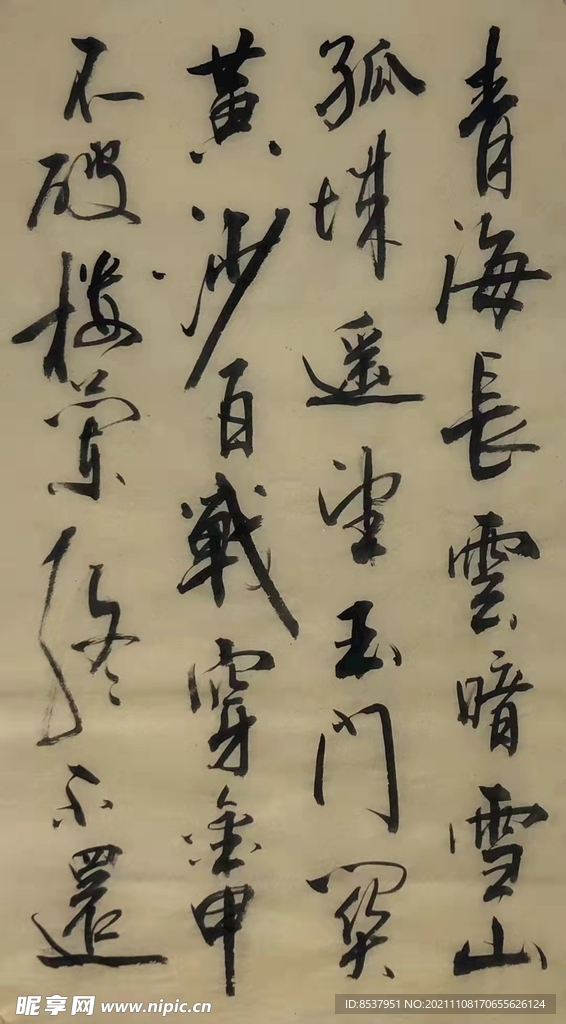 青海長雲暗雪山
孤城遥望玉門関
黄沙百戰穿金甲
不破楼蘭終不還
昵享网 www.nipic.cn
ID:8537951 NO:20211108170655626124